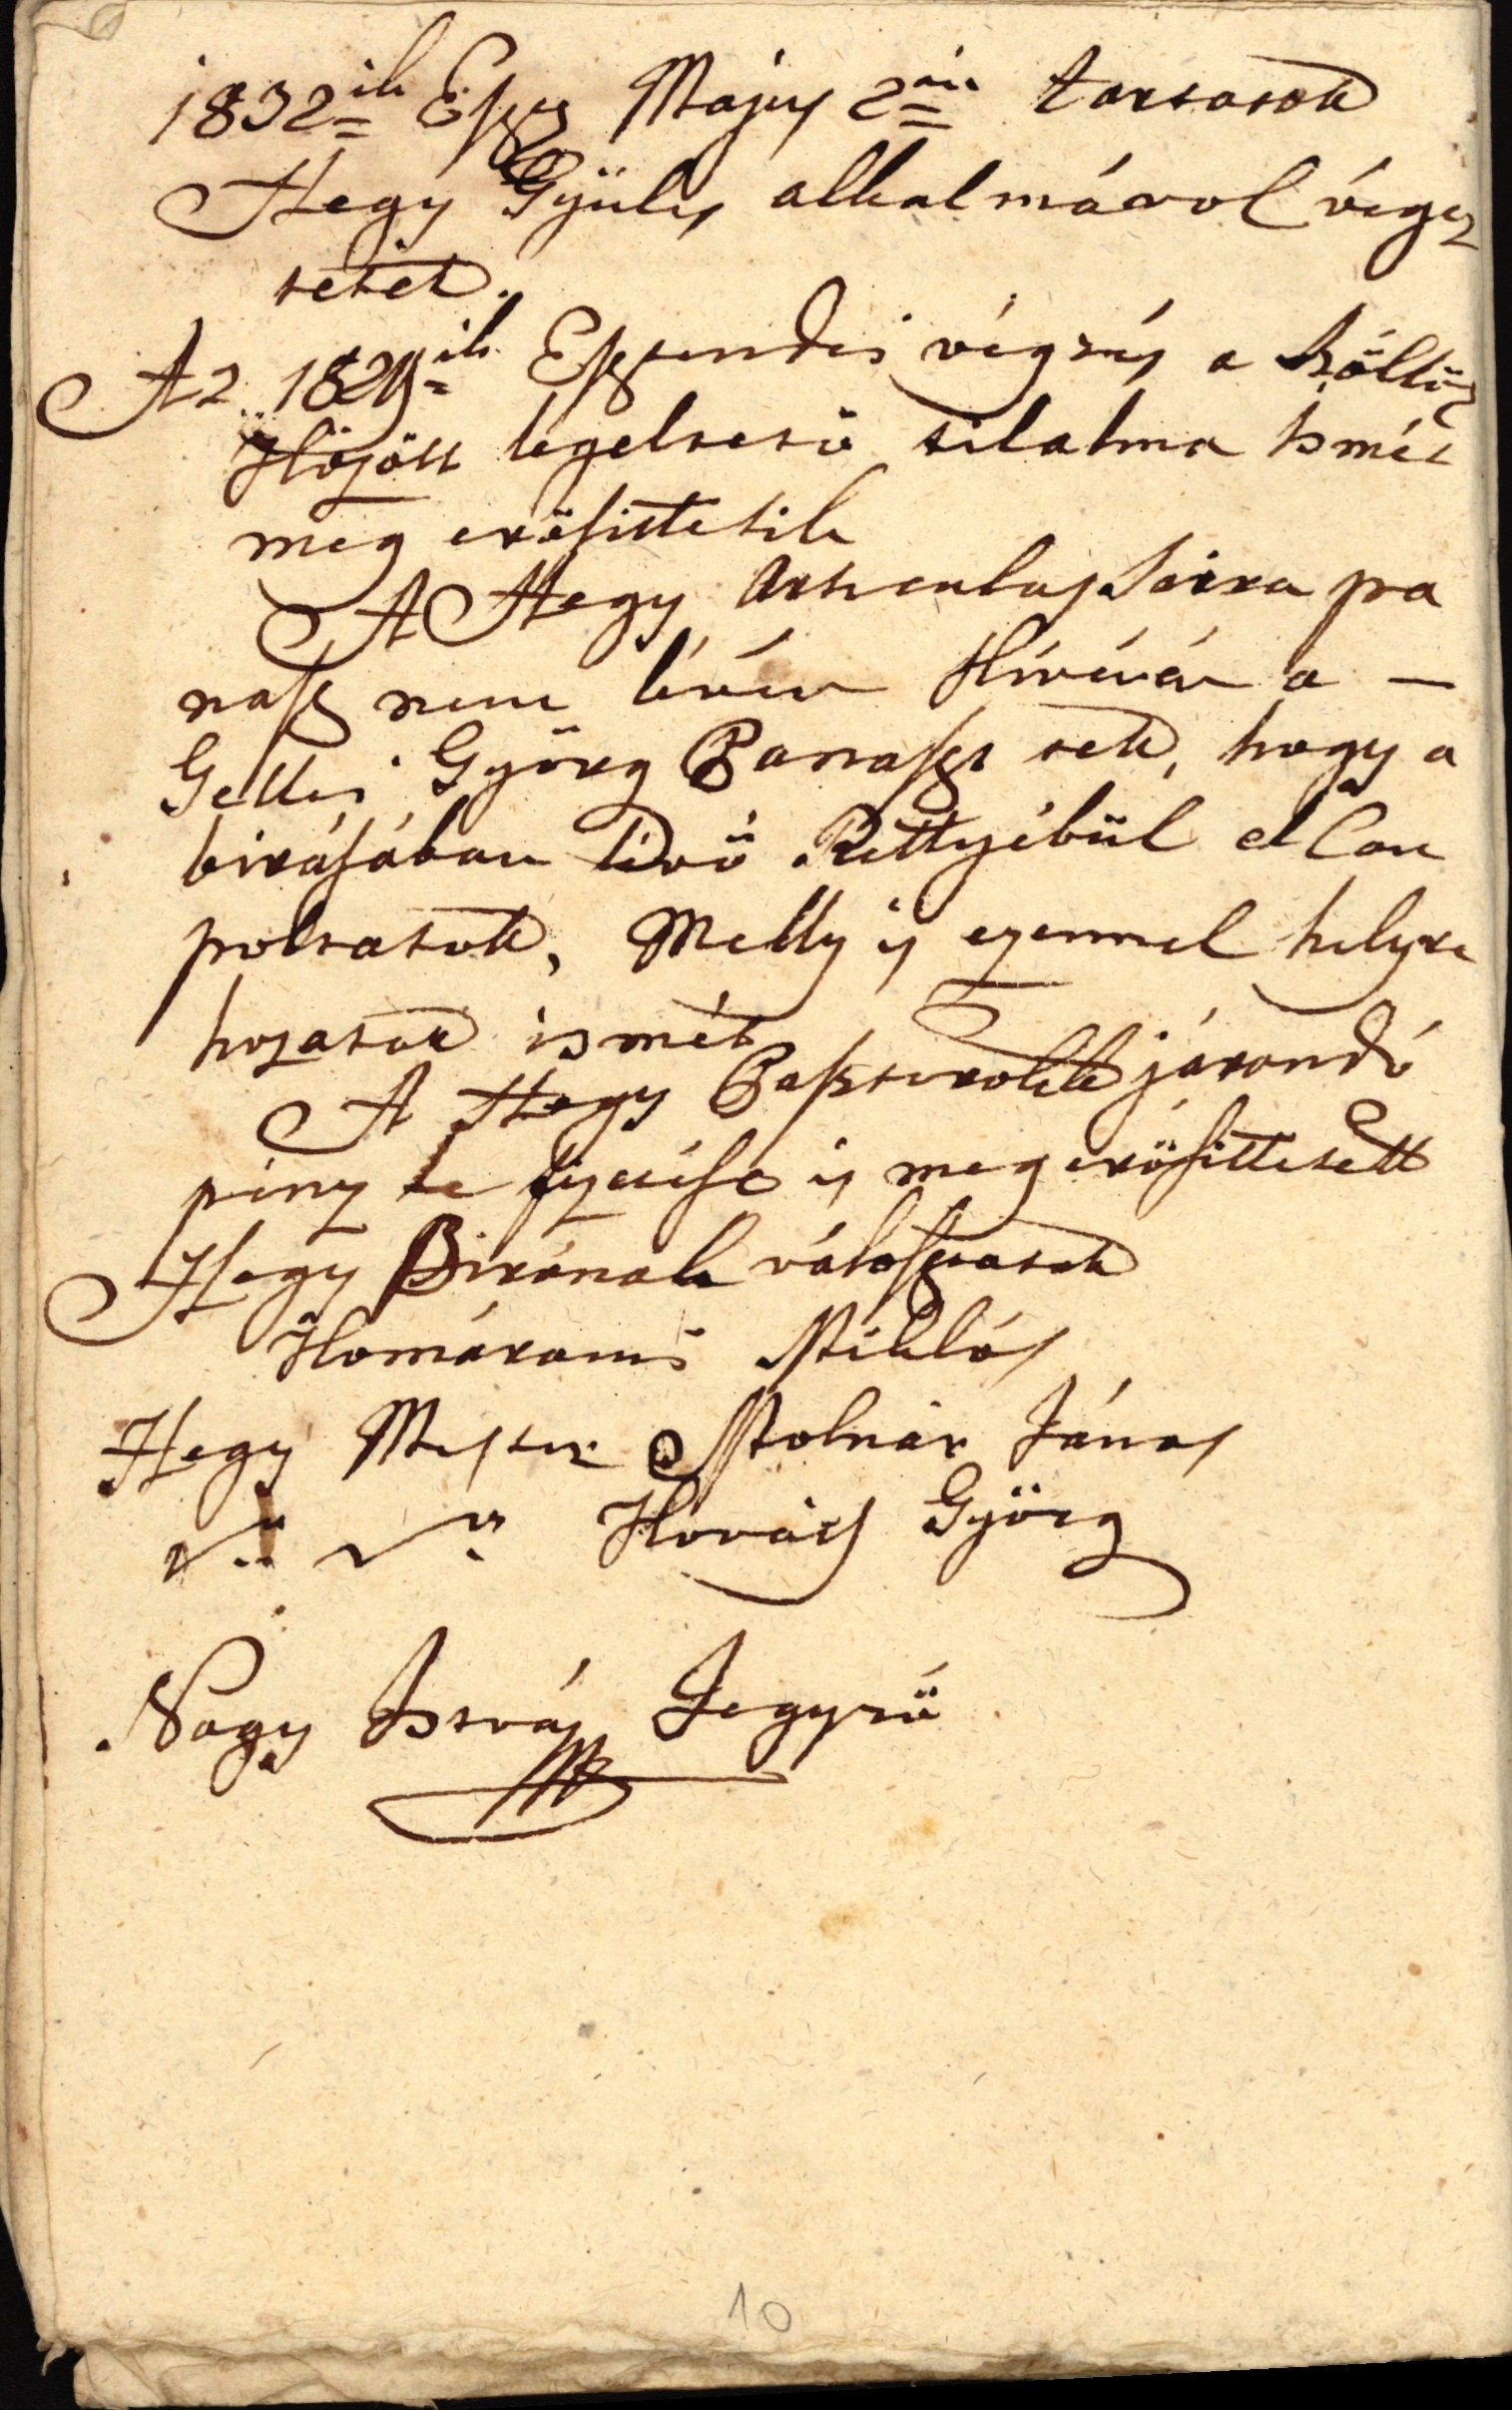 1832ik Eszt Május 2án tartatott
Hegy Gyülés alkalmával végez
tetet.
Az 1829ik Esztendei végzés a Szöllö
Között legeltetö tilalma Ismét
meg erösittetik
A Hegy Articulussaira pa
nasz nem lévén Kivévén a —
Gellei Györg Panaszt tett, hogy a
birásában lévö Réttyébül el Ca
poltatott, Melly is ezennel helyre
hozatott ismét
A Hegy Pasztorokk járondó
pénz le fizetése is meg erösittetett
Hegy Birának választatott
Komáromi Miklós
Hegy Mester Molnár János
Kovács Györg
Nagy István Jegyzö
10